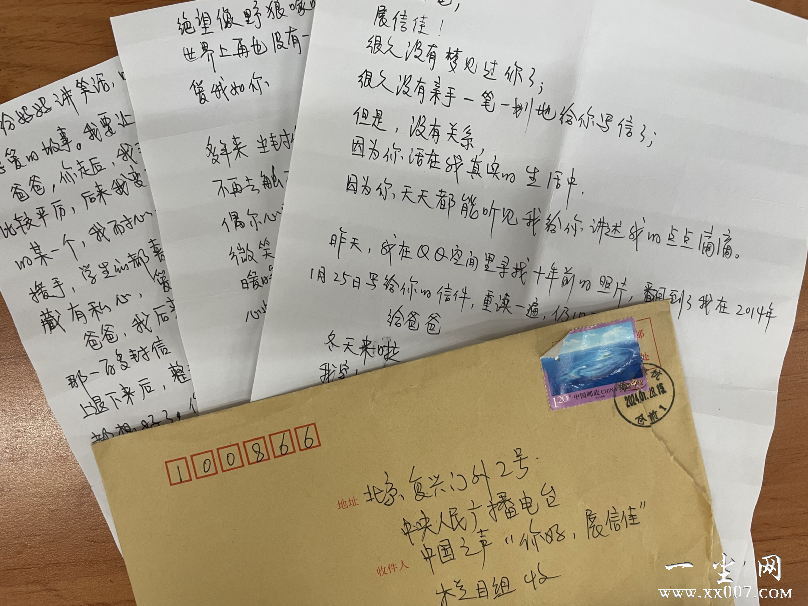 给妈妈讲笑话,
爱的故事。我要让
爸爸,你走后,我
比较平历,后来我要
的某一个,我而对心
播手,学生的都喜
藏有私心,爱
爸爸,我后
那一百多封信
上退下来后,整
绝望像野狼嚎
世界上再也没有一
爱我如你
多年来
不再去触
偶尔心
微笑
展信佳!
很久没有梦见过你了;
很久没有亲手一笔一划地给你写信了;
但是,没有关系,
因为你活在我真实的生活中.
因为你,天天都能听见我给你讲述我的点点滴滴。
昨天,我在QQ空间里寻找十年前的照片,翻到了我在2014年
1月25日写给你的信件,重读一遍,仍
给爸爸
冬天来啦
我宝
中国邮政 CHINA
1.20
2024.01.29.18
100866
地址 北京.复兴门外2号.
中央人民广播电台
中国之声“你好,展信佳”
收件人
栏目组 收
一尘网
www.xx007.com